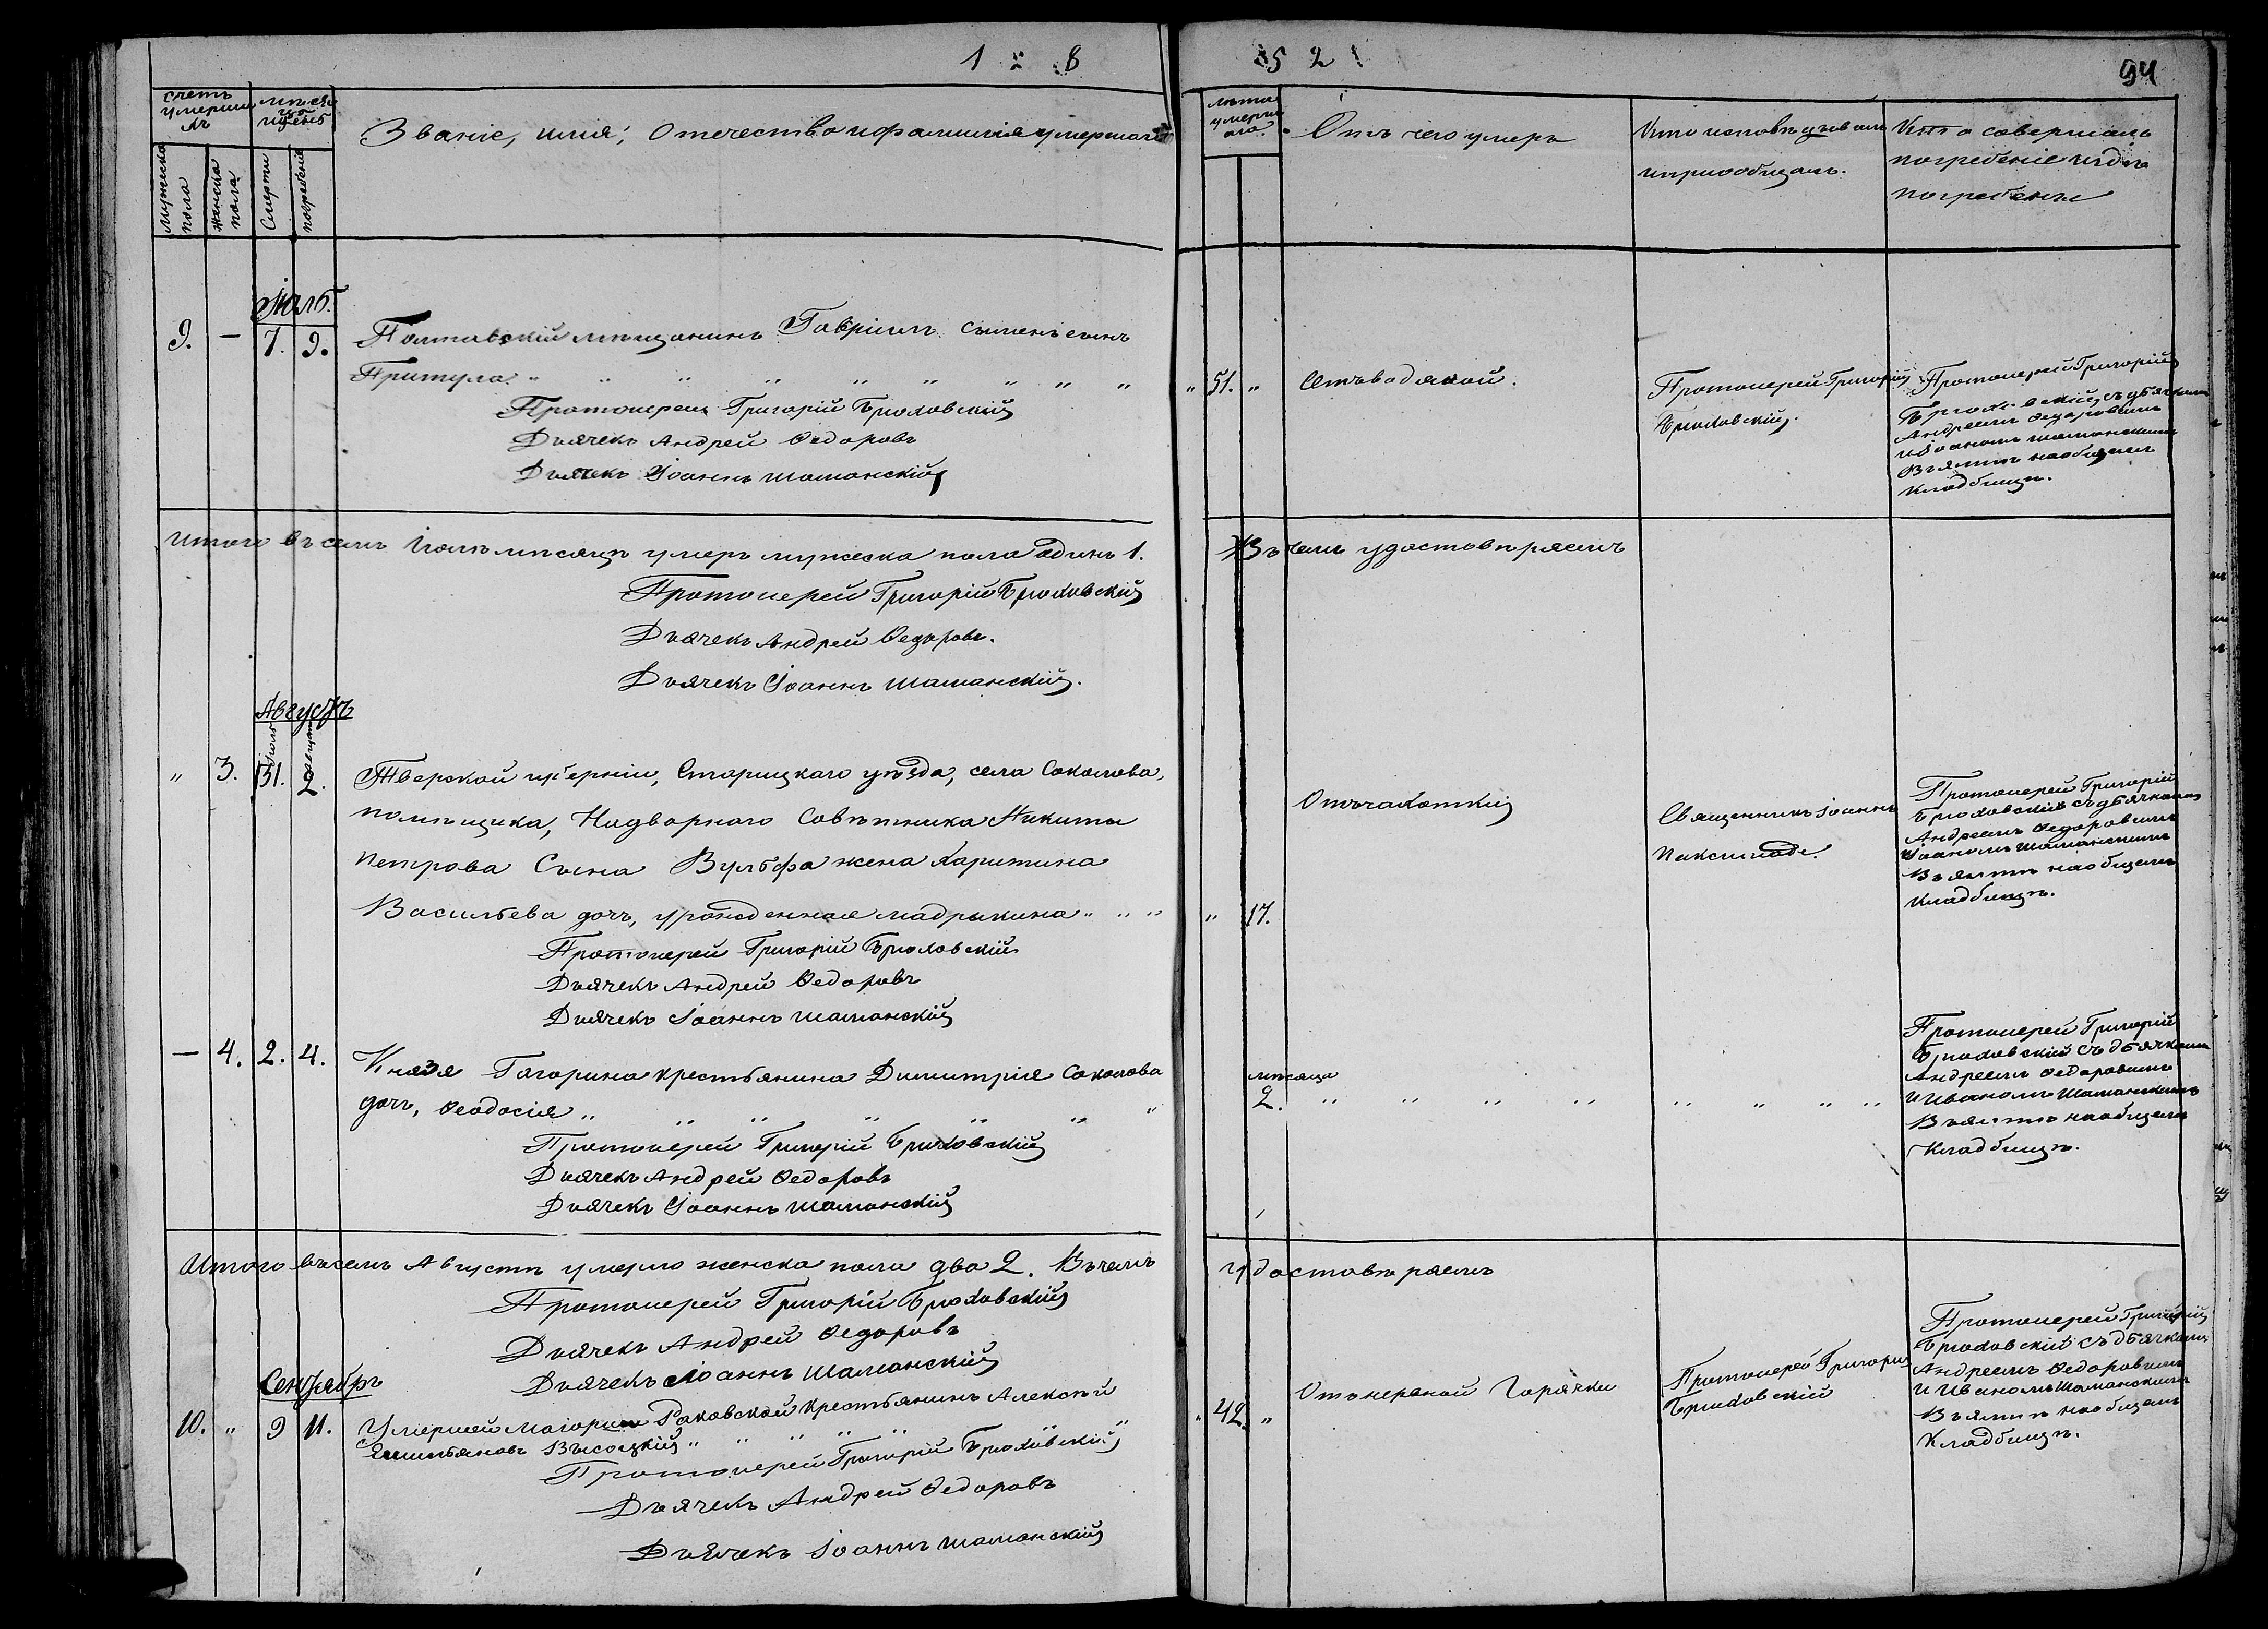 1 8 5 2
94
Счетъ умершихъ
Мѣсяцъ и день
Званіе, имя, отечество и фамилія умершаго
Лѣта умершаго
Отъ чего умеръ
Кто исповѣдывалъ и пріобщалъ.
Кто совершалъ погребеніе и гдѣ погребены
Мужеска пола
Женска пола
Смерти
погребенія
Іюль.
9. — 7. 9. Полтавскій мѣщанинъ Гавріилъ Сынъ
Притула. " " " " " " " " "
" 51. " Отъ водяной.
Протоіерей Григорій
Брюховскій.
Протоіерей Григорій
Брюховскій съ дьячками
Андреемъ Федоровымъ
и Іоаномъ Шаманскимъ
Въ Ялтѣ на общемъ
Кладбищѣ.
Протоіерей Григорій Брюховскій
Дьячекъ Андрей Федоровъ
Дьячекъ Іоаннъ Шаманскій
Итого въ семъ Іюлѣ мѣсяцѣ умеръ мужеска пола одинъ 1. Въ чемъ удостовѣряемъ
Протоіерей Григорій Брюховскій
Дьячекъ Андрей Федоровъ.
Дьячекъ Іоаннъ Шаманскій.
Августъ
Іюля Августа
" 3. 31. 2. Тверской губерніи, Старицкаго уѣзда, села Соколова,
помѣщика, Надворнаго Совѣтника Никиты
Петрова Сына Вульфа жена Харитина
Васильева дочь, урожденная Мадрыкина " " "
" 17.
Отъ чахотки
Священникъ Іоаннъ
Протоіерей Григорій
Брюховскій съ дьячками
Андреемъ Федоровымъ
и Іоаномъ Шаманскимъ
Въ Ялтѣ на общемъ
Кладбищѣ.
Протоіерей Григорій Брюховскій
Дьячекъ Андрей Федоровъ
Дьячекъ Іоаннъ Шаманскій
— 4. 2. 4. Князя Гагарина крестьянина Димитрія Соколова
дочь, Феодосія " " " " " " "
мѣсяца
2. " " " " " " " "
Протоіерей Григорій
Брюховскій съ дьячками
Андреемъ Федоровымъ
и Иваномъ Шаманскимъ
Въ Ялтѣ на общемъ
Кладбищѣ.
Протоіерей Григорій Брюховскій
Дьячекъ Андрей Федоровъ
Дьячекъ Іоаннъ Шаманскій
Итого въ семъ Августѣ умерло женска пола два 2. Въ чемъ удостовѣряемъ
Протоіерей Григорій Брюховскій
Дьячекъ Андрей Федоровъ
Дьячекъ Іоаннъ Шаманскій
Сентябрь
10. " 9 11. Умершей Маіорши Раковской крестьянинъ Алексѣй
Емильяновъ Высоцкій " " " " " " "
" 42 " Отъ нервной Горячки
Протоіерей Григорій
Брюховскій
Протоіерей Григорій
Брюховскій съ дьячками
Андреемъ Федоровымъ
и Иваномъ Шаманскимъ
Въ Ялтѣ на общемъ
Кладбищѣ.
Протоіерей Григорій Брюховскій
Дьячекъ Андрей Федоровъ
Дьячекъ Іоаннъ Шаманскій